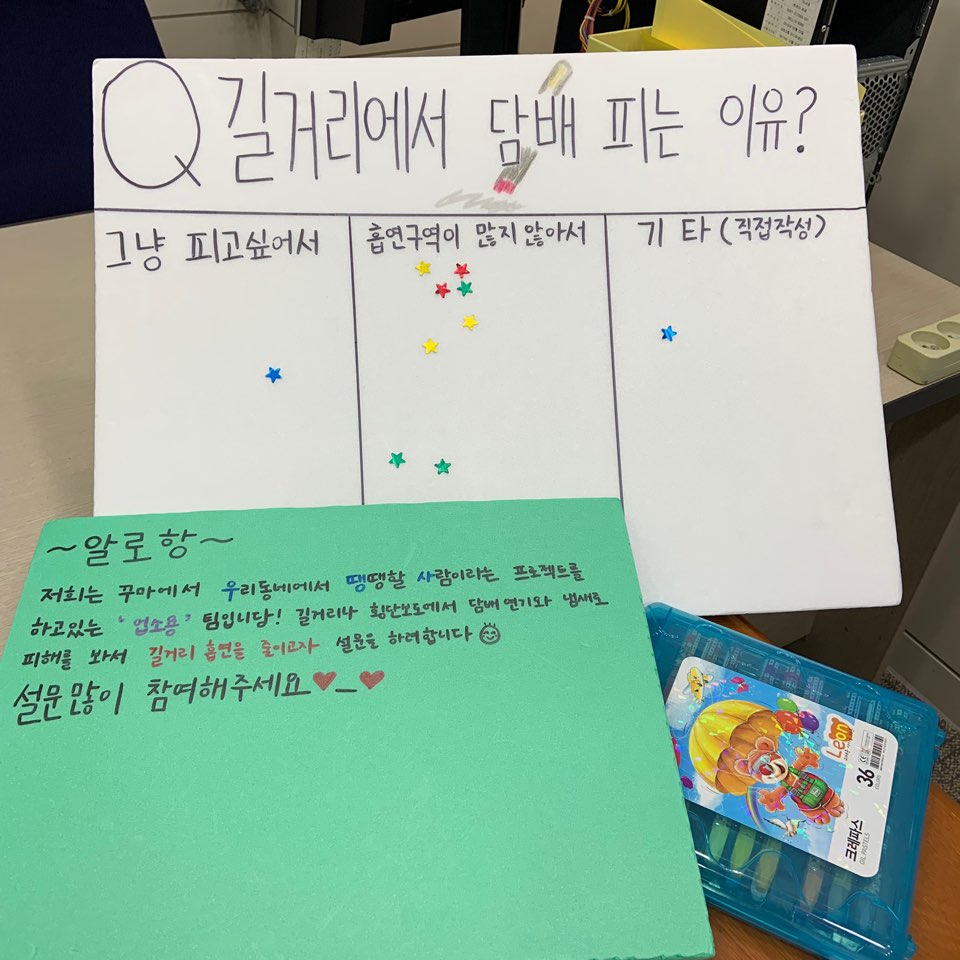 Q 길거리에서 담배 피는 이유?
그냥 피고싶어서
흡연구역이 많지 않아서
기타(직접작성)
~알로항~
저희는 꾸마에서 우리동네에서 땡땡할 사람이라는 프로젝트를
하고있는 '업소용' 팀입니답! 길거리나 횡단보도에서 담배연기와 냄새로
피해를 봐서 길거리 흡연을 줄이고자 설문을 하려합니다
설문많이 참여해주세요♥_♥
Leon
36
COLORS
크레파스
OIL PASTELS